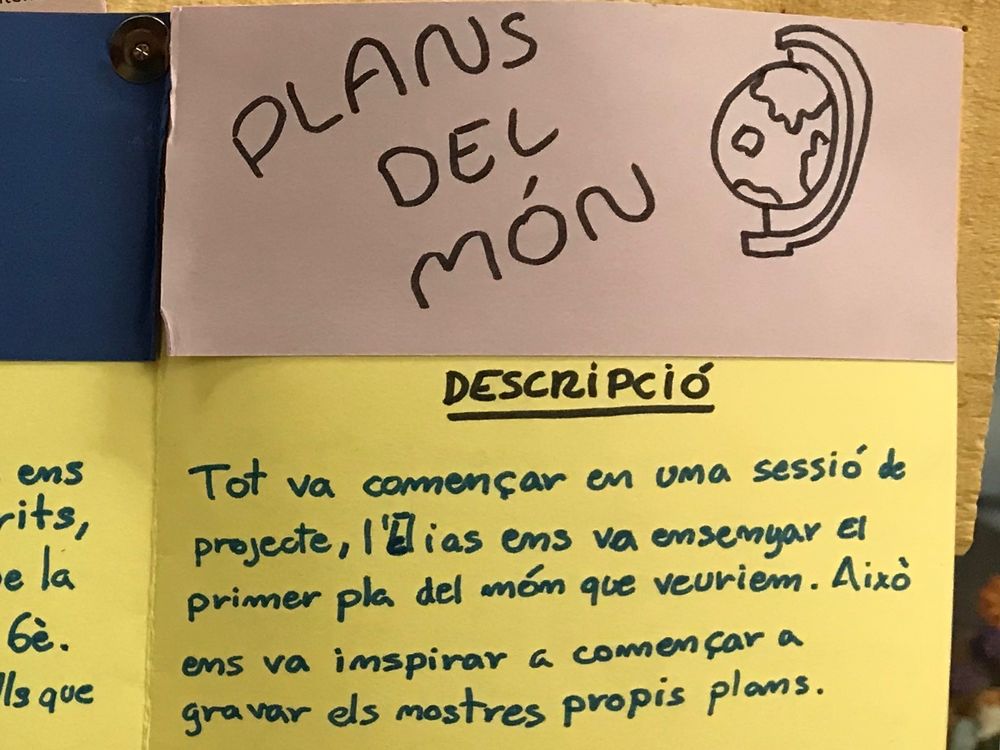 PLANS
DEL
MÓN
DESCRIPCIÓ
Tot va començar en una sessió de
projecte, l'Elias ens va ensenyar el
primer pla del món que veuriem. Això
ens va inspirar a començar a
gravar els nostres propis plans.
ens
rits,
e la
6è.
lls que